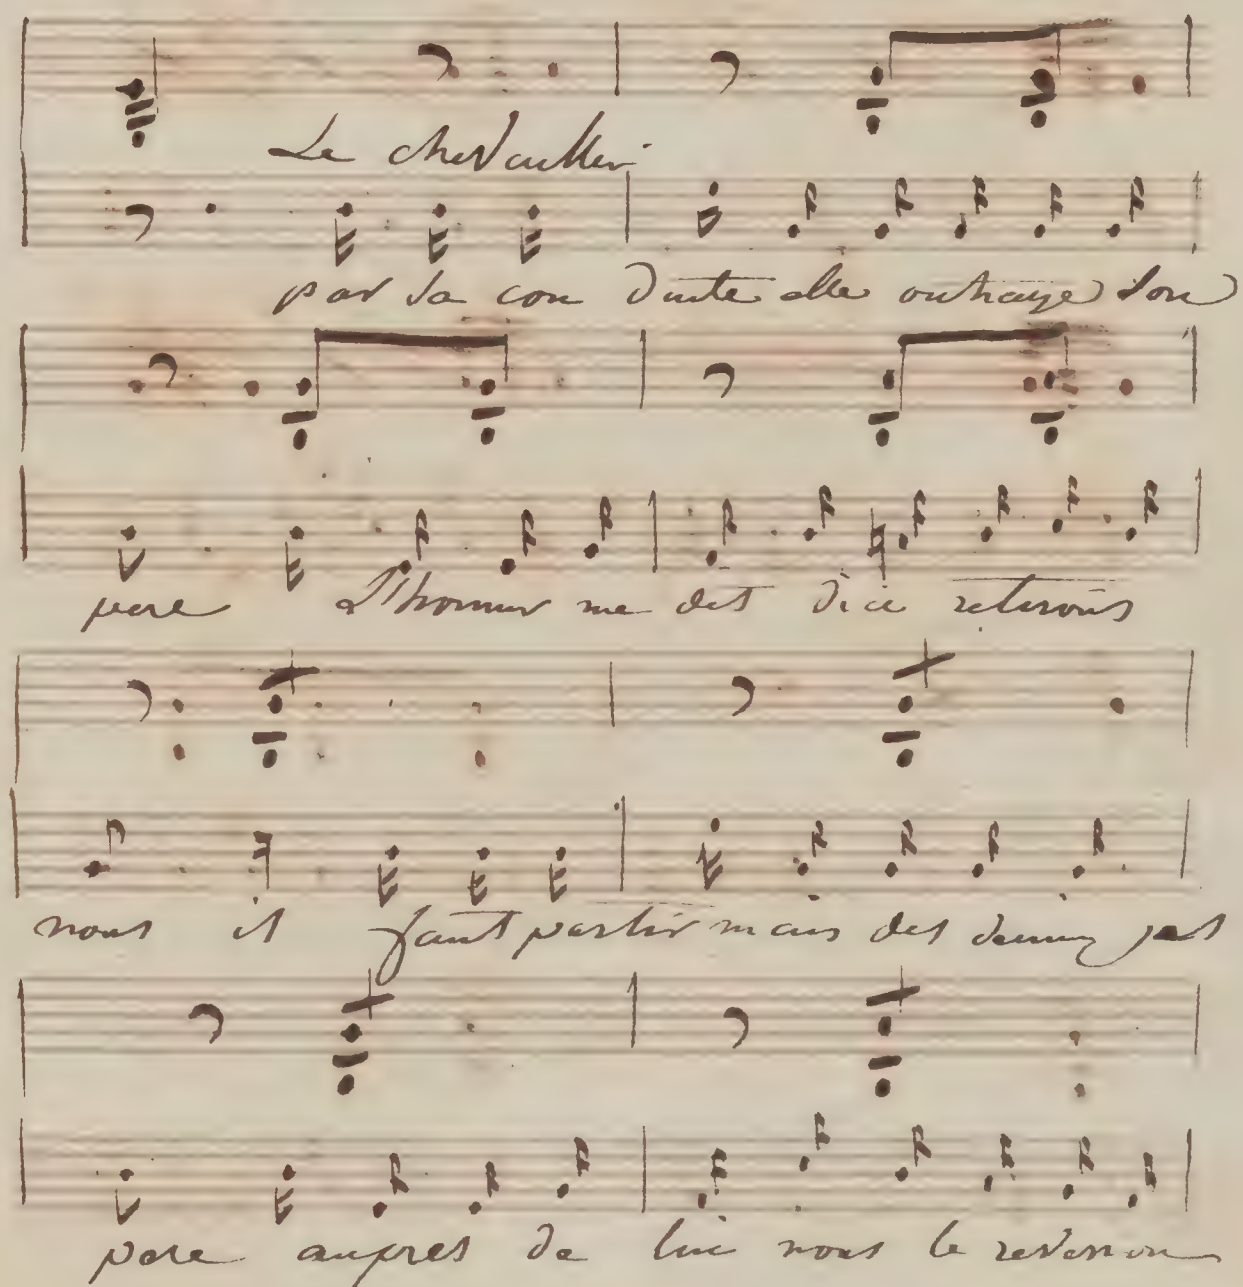 Le chevallier
par sa con duite elle outrage son
pere L'honneur me dit dici retirons
nous il faut partir mais des demin pres
pere aupres de lui nous le reverron